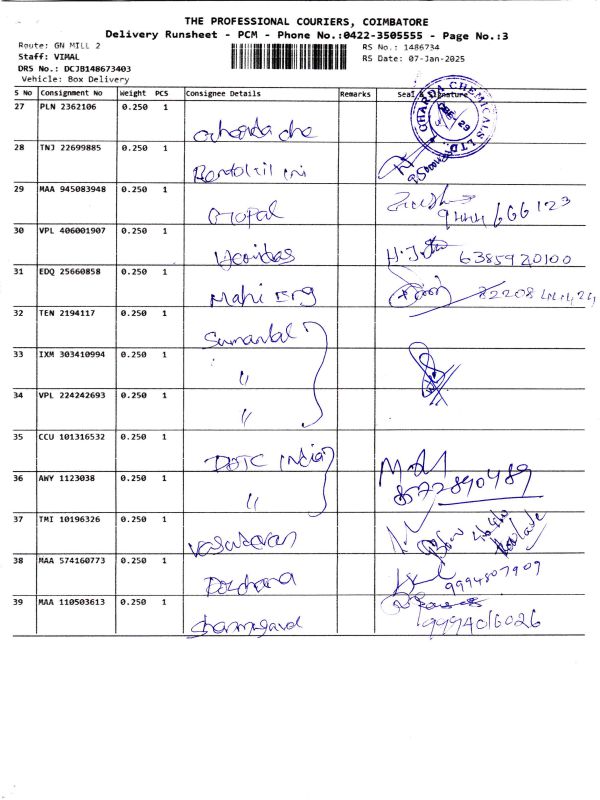 THE PROFESSIONAL COURIERS, COIMBATORE
Delivery Runsheet - PCM - Phone No.:0422-3505555 - Page No.:3
Route: GN MILL 2
RS No.: 1486734
Staff: VIMAL
RS Date: 07-Jan-2025
DRS No.: DCJB148673403
Vehicle: Box Delivery
S No Consignment No Weight PCS Consignee Details Remarks Seal & Signature
GHARDA CHEMICALS LTD.
27 PLN 2362106 0.250 1
28 TNJ 22699885 0.250 1
29 MAA 945083948 0.250 1 Gopal 9444666123
30 VPL 406001907 0.250 1 Haridas 6385920100
31 EDQ 25660858 0.250 1 Mahi Eng
32 TEN 2194117 0.250 1
33 IXM 303410994 0.250 1 "
34 VPL 224242693 0.250 1 "
35 CCU 101316532 0.250 1 India
36 AWY 1123038 0.250 1 " 8572890489
37 TMI 10196326 0.250 1
38 MAA 574160773 0.250 1 9994807909
39 MAA 110503613 0.250 1 9994016026